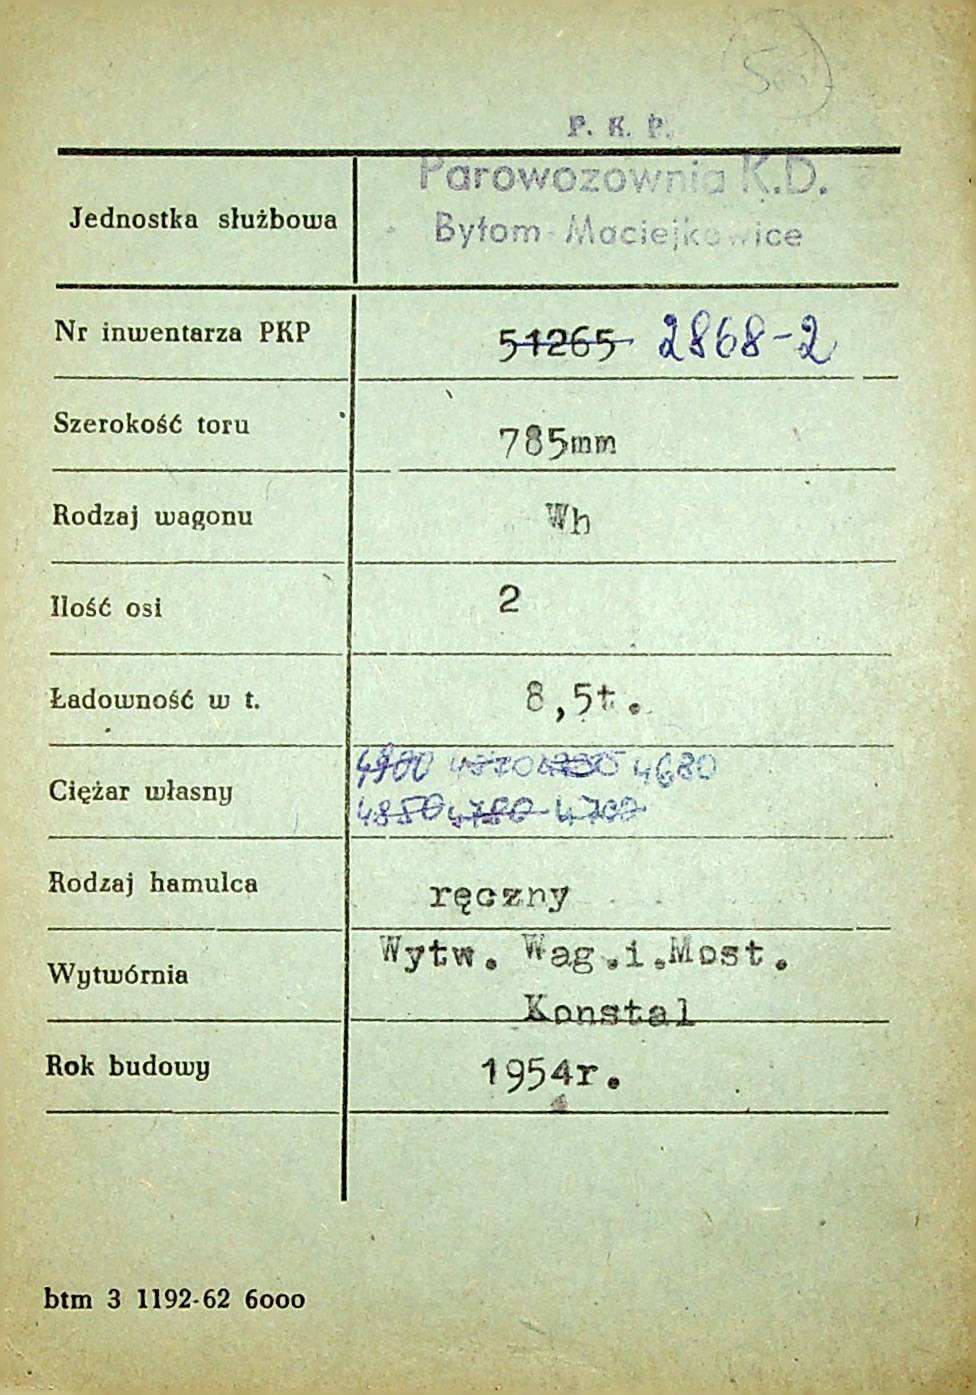 P. K. P.
Parowozownia K.D.
Jednostka służbowa
Bytom-Maciejkowice
Nr inwentarza PKP 51265 2868-2
Szerokość toru 785mm
Rodzaj wagonu Wh
Ilość osi 2
Ładowność w t. 8,5t.
4680
Ciężar własny
4850 4780 4700
Rodzaj hamulca ręczny
Wytw. Wag.i.Most.
Wytwórnia
Konstal
Rok budowy 1954r.
btm 3 1192-62 6000